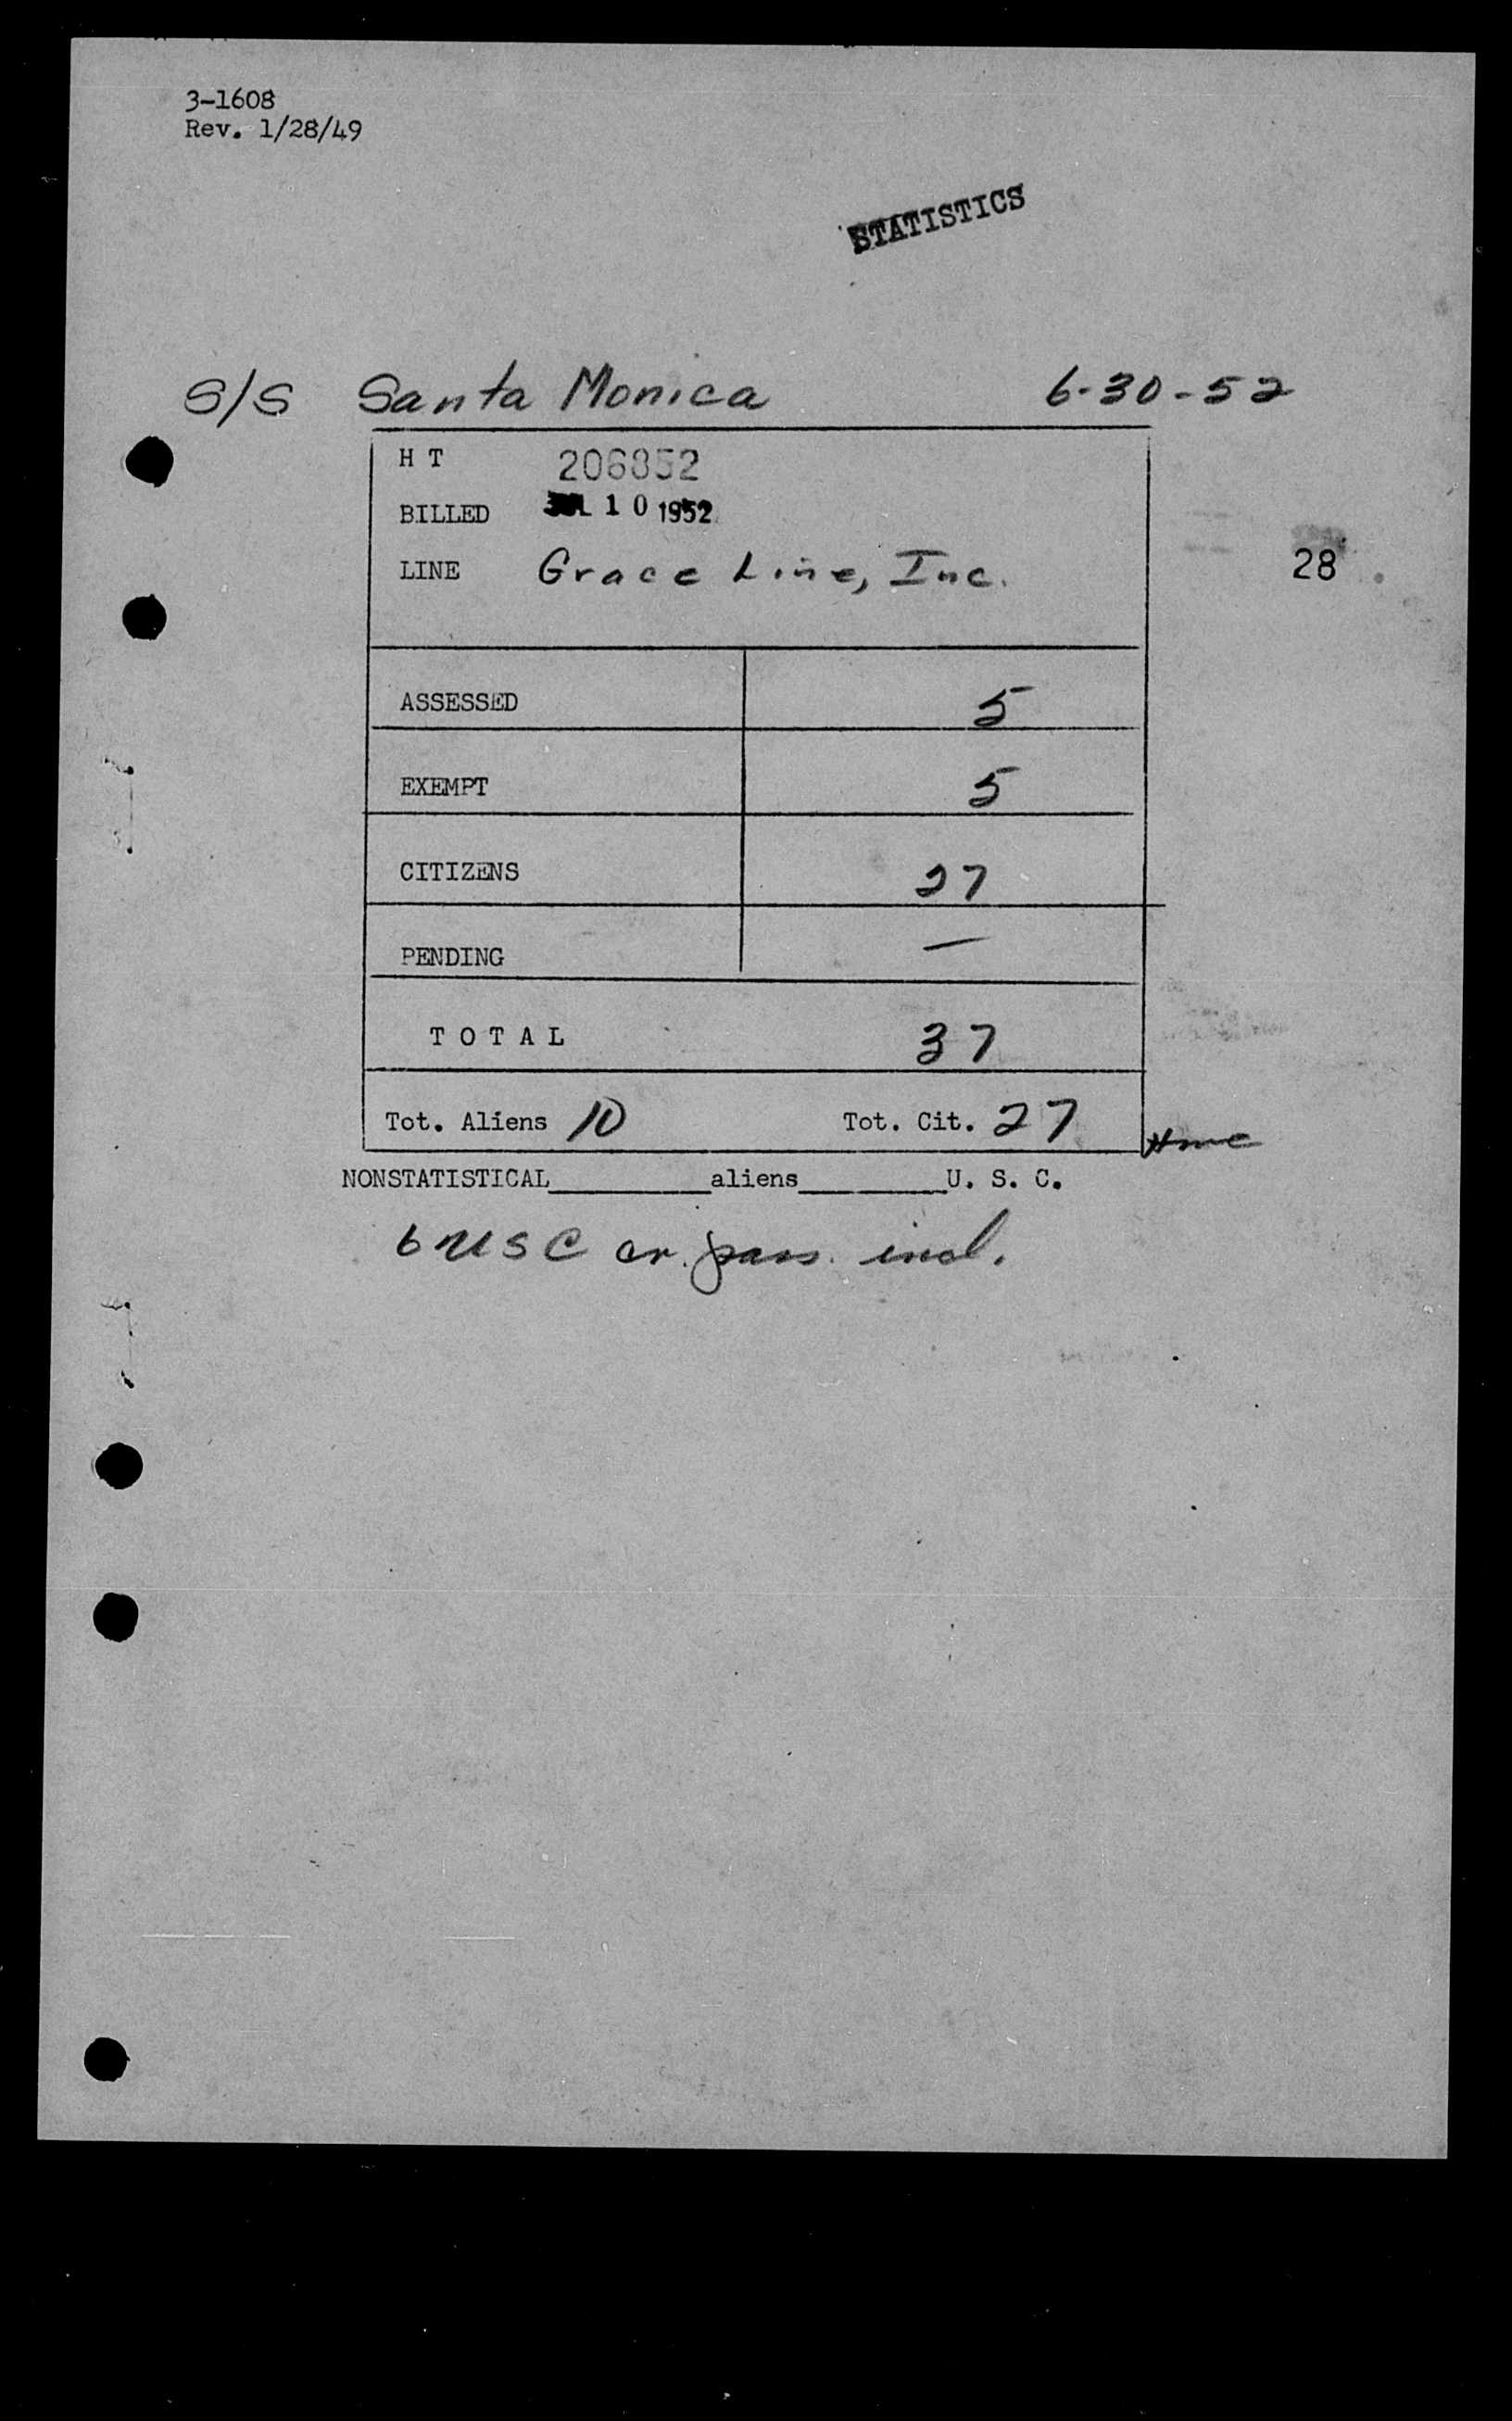 3-1608
Rev. 1/28/49
STATISTICS
S/S Santa Monica 6-30-52
H T 206852
BILLED JUL 10 1952
LINE Grace Line, Inc.
28
ASSESSED 5
EXEMPT 5
CITIZENS 27
PENDING —
T O T A L 37
Tot. Aliens 10 Tot. Cit. 27
NONSTATISTICAL__________aliens_________U. S. C.
6 USC cr. pass. incl.